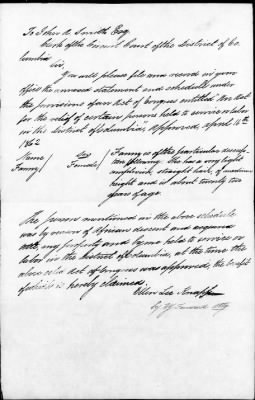 To John A Smith Esq
Clerk of the Circuit Court of the District of Co-
lumbia
Sir,
You will please file and record in your
office the annexed statement and schedule under
the provisions of an Act of Congress entitled "An Act
for the relief of certain persons held to service or labor
in the District of Columbia, Approved, April 16th
1862
Name Sex Fanny is of the particular descrip-
Fanny Female tion following. She has a very light
complexion, straight hair, of medium
height and is about twenty two
years of age.
The person mentioned in the above schedule
was by reason of African descent and
my property and by me held to service or
labor in the District of Columbia, at the time the
above cited Act of Congress was approved, the benefit
of which is hereby claimed.
Ellen Lee Knapp
by Atty